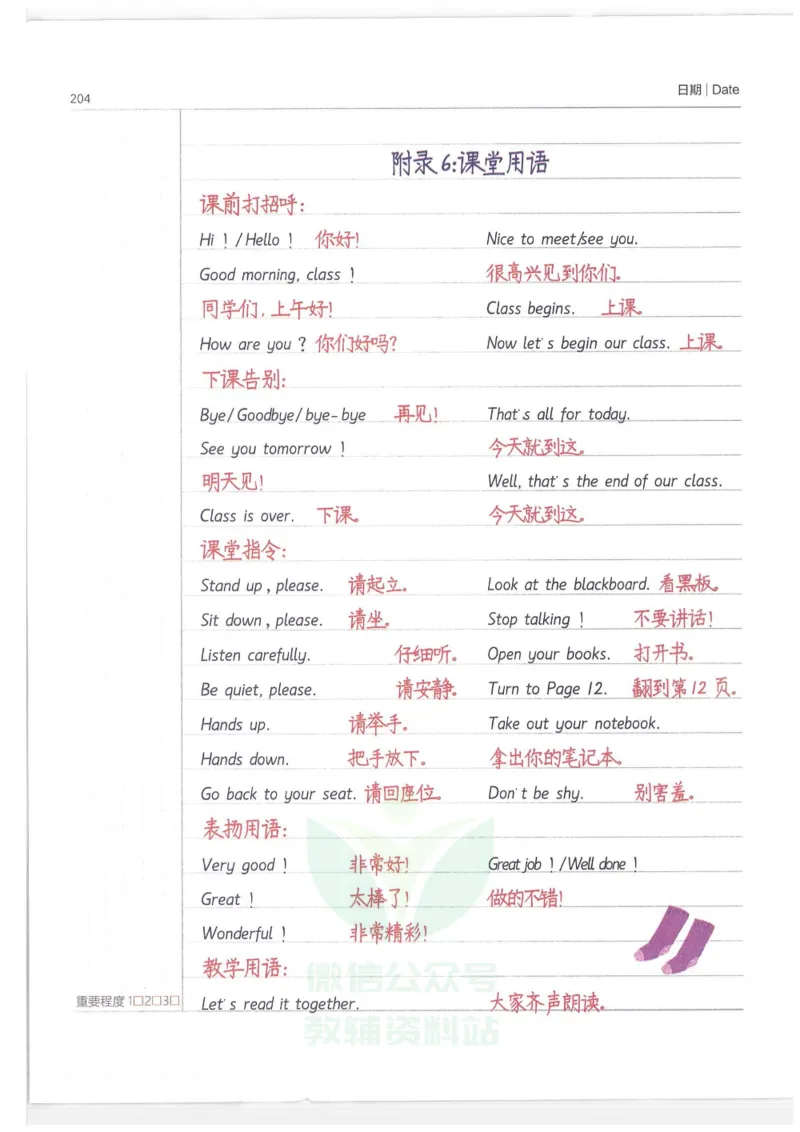 204
日期 | Date
附录6:课堂用语
课前打招呼:
Hi！/Hello！ 你好! Nice to meet/see you.
Good morning, class！ 很高兴见到你们。
同学们,上午好! Class begins. 上课。
How are you？ 你们好吗? Now let's begin our class. 上课。
下课告别:
Bye/Goodbye/bye-bye 再见! That's all for today.
See you tomorrow！ 今天就到这。
明天见! Well, that's the end of our class.
Class is over. 下课。 今天就到这。
课堂指令:
Stand up, please. 请起立。 Look at the blackboard. 看黑板。
Sit down, please. 请坐。 Stop talking！ 不要讲话!
Listen carefully. 仔细听。 Open your books. 打开书。
Be quiet, please. 请安静。 Turn to Page 12. 翻到第12页。
Hands up. 请举手。 Take out your notebook.
Hands down. 把手放下。 拿出你的笔记本。
Go back to your seat. 请回座位。 Don't be shy. 别害羞。
表扬用语:
Very good！ 非常好! Great job！/Well done！
Great！ 太棒了! 做的不错!
Wonderful！ 非常精彩!
教学用语:
微信公众号
重要程度 1□2□3□ Let's read it together. 大家齐声朗读。
教辅资料站